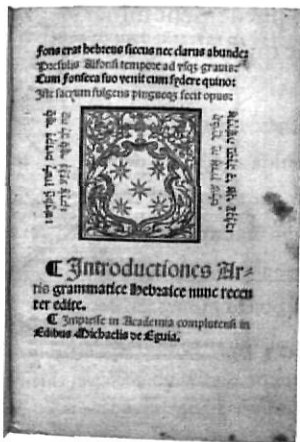 Fons erat hebreus siccus nec clarus abunde:
Presulis Alfonsi tempore ad vsqȝ gravis:
Cum Fonseca suo venit cum sydere quino:
Iste sacrum fulgens pingueqȝ fecit opus:
¶ Introductiones Ar-
tis grammatice Hebraice nunc recen
ter edite.
¶ Impresse in Academia complutensi in
Edibus Michaelis de Eguia.